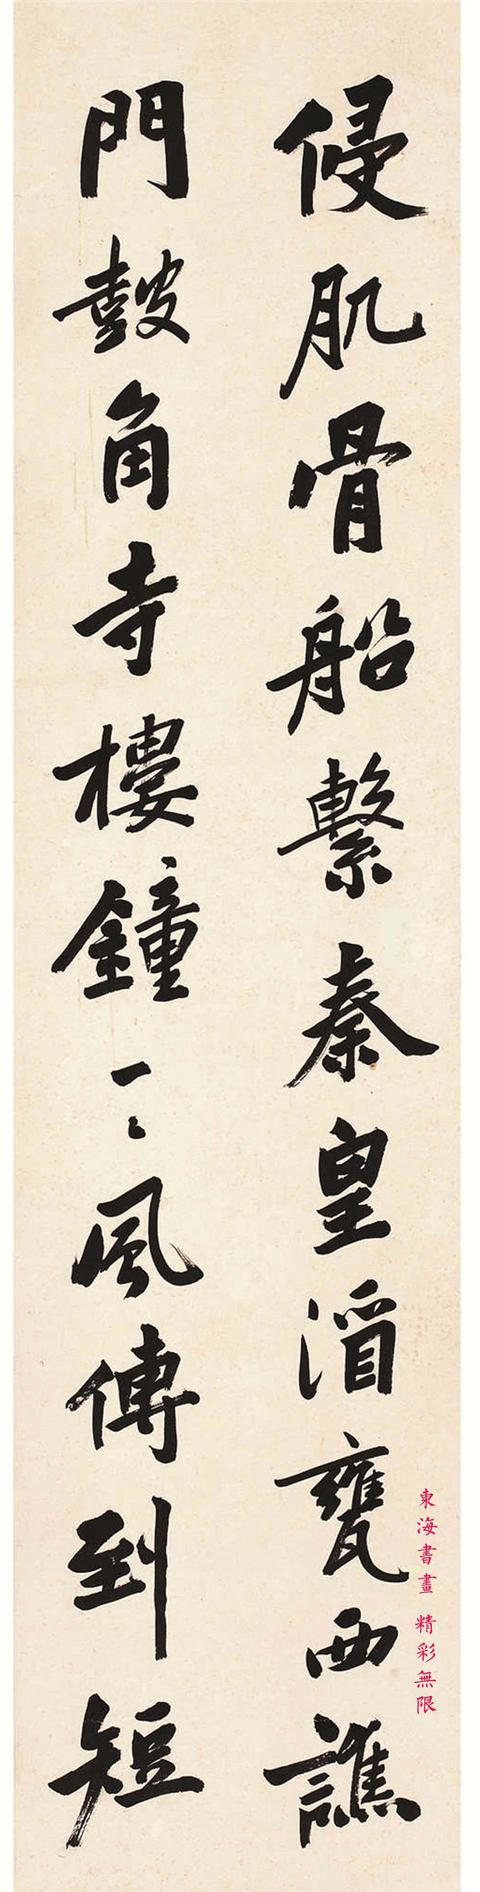 侵肌骨船繫秦皇酒甕西譙
門皷角寺樓鐘一〻風傳到短
東海書畫 精彩無限